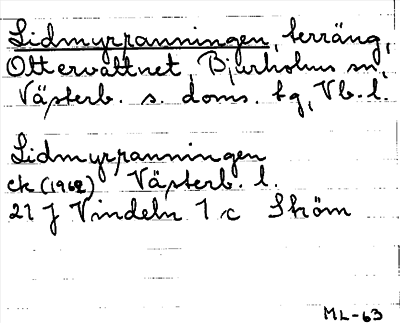 Lidmyrpanningen, terräng,
Ottervattnet, Bjurholms sn,
Västerb. s. doms. tg, Vb. l.
Lidmyrpanningen
ek (1962) Västerb. l.
21 J Vindeln 1 c Ström
ML-63